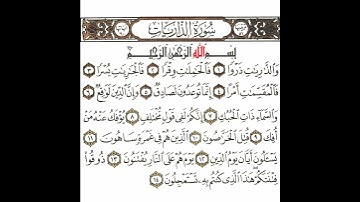 سُورَةُ الذَّارِيَاتِ
بِسْمِ اللَّهِ الرَّحْمَٰنِ الرَّحِيمِ
وَالذَّارِيَاتِ ذَرْوًا ١ فَالْحَامِلَاتِ وِقْرًا ٢ فَالْجَارِيَاتِ يُسْرًا ٣
فَالْمُقَسِّمَاتِ أَمْرًا ٤ إِنَّمَا تُوعَدُونَ لَصَادِقٌ ٥ وَإِنَّ الدِّينَ لَوَاقِعٌ ٦
وَالسَّمَاءِ ذَاتِ الْحُبُكِ ٧ إِنَّكُمْ لَفِي قَوْلٍ مُّخْتَلِفٍ ٨ يُؤْفَكُ عَنْهُ مَنْ
أُفِكَ ٩ قُتِلَ الْخَرَّاصُونَ ١٠ الَّذِينَ هُمْ فِي غَمْرَةٍ سَاهُونَ ١١
يَسْأَلُونَ أَيَّانَ يَوْمُ الدِّينِ ١٢ يَوْمَ هُمْ عَلَى النَّارِ يُفْتَنُونَ ١٣ ذُوقُوا
فِتْنَتَكُمْ هَٰذَا الَّذِي كُنتُم بِهِ تَسْتَعْجِلُونَ ١٤